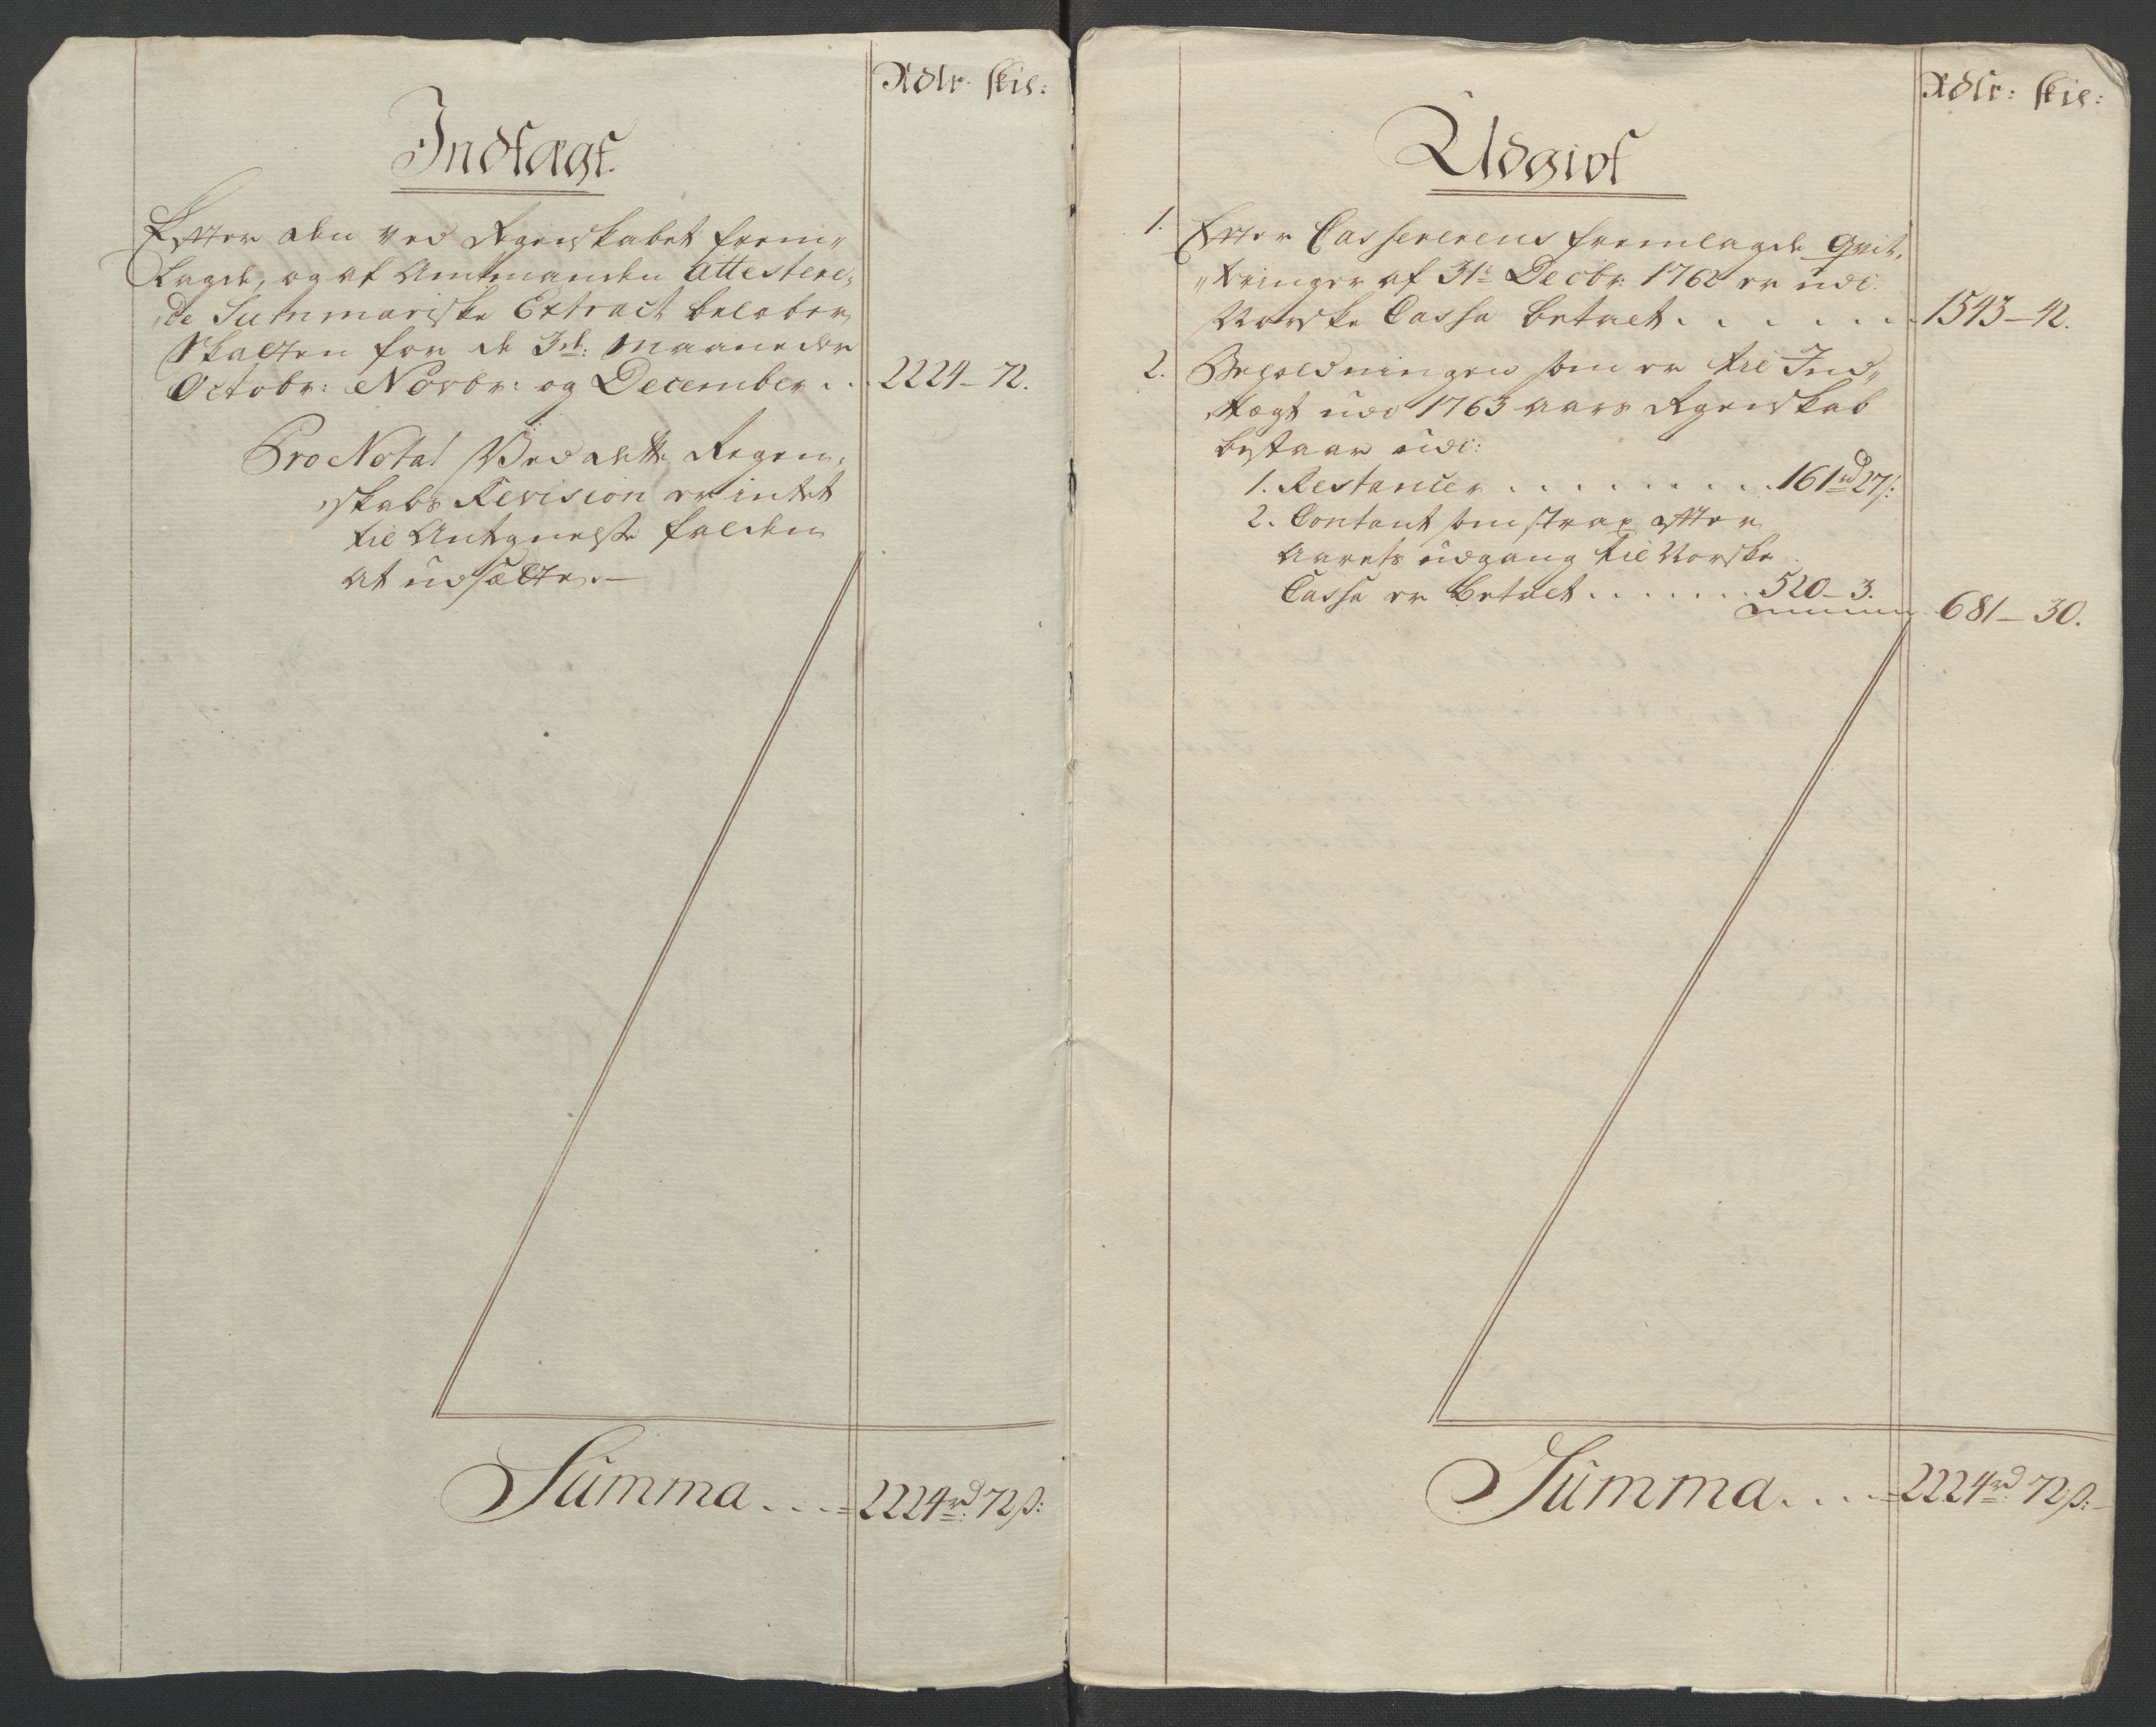 Rdlr. skil:
Indtægt.
Efter den ved Regenskabet frem„
lagde, og af Amtmanden attestere„
de Summariske Extract beløber
Skatten for de 3de: Maaneder
Octobr: Novbr: og December . . 2224 – 72.
Pro Nota! Ved dette Regen„
skabs Revision er intet
til Antegnelse falden
at udsætte. –
Summa . . . 2224rd 72s:
Rdlr: skil:
Udgivt
1. Efter Casserernes fremlagde Qvit„
„teringer af 31te Decbr: 1762 er udi
Norske Cassa betalt . . . . . . 1543 – 42.
2. Beholdningen som er til Ind„
„tægt udi 1763 aars Regenskab
bestaar udi:
1. Restancer . . . . . . . . . 161rd 27s:
2. Contant som strax efter
Aarets udgang til Norske
Cassa er betalt . . . . . . . 520 – 3.
681 – 30.
Summa . . . . 2224rd 72s: –